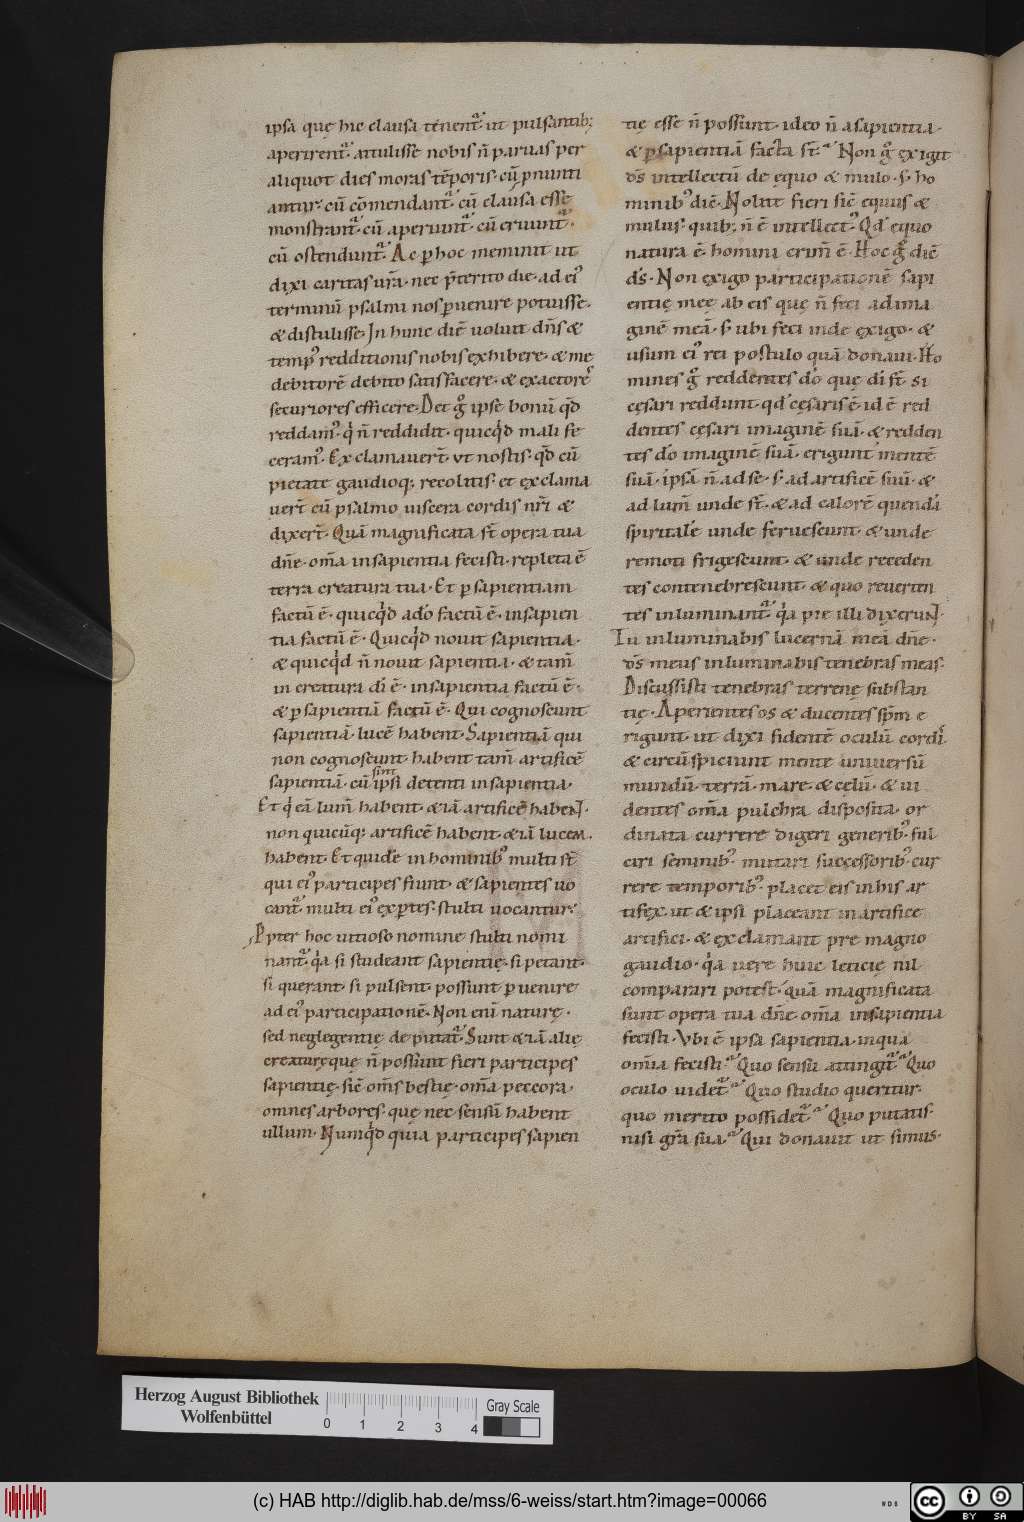 ipsa quę hic clausa tenent᷑ ut pulsantib;
aperirent᷑ attulisse nobis n̄ paruas per
aliquot dies moras tēporis· cū ꝓnunti
antur· cū cōmendant᷑· cū clausa esse
monstrant᷑· cū aperiunt᷑· cū eruunt᷑·
cū ostendunt᷑· Ac ꝑ hoc meminit ut
dixi caritas ur̄a· nec p̄terito die· ad ei᷒
terminū psalmi nos ꝑuenire potuisse·
& distulisse· In hunc diē uoluit dn̄s &
temp᷒ redditionis nobis exhibere· & me
debitorē debito satisfacere· & exactores
securiores efficere· Det g̊ ipse bonū qd̄
reddam᷒· q̇ n̄ reddidit· quicq̇d mali fe
ceram᷒· Exclamauer̄t· ut nostis· qd̄ cū
pietate gaudioq; recolitis· et exclama
uer̄t cū psalmo uiscera cordis nr̄i· &
dixer̄t· Quā magnificata st̄ opera tua
dn̄e· om̄a in sapientia fecisti· repleta ē
terra creatura tua· Et ꝑ sapientiam
factū ē· quicq̇d a do̅ factū ē· in sapien
tia factū ē· Quicq̇d nouit sapientia·
& quicq̇d n̄ nouit sapientia· & tam̄
in creatura di̅ ē· in sapientia factū ē·
& ꝑ sapientiā factū ē· Qui cognoscunt
sapientiā· lucē habent· Sapientiā qui
non cognoscunt habent tam̄ artificē
sapientiā· cū sint ipsi detenti in sapientia·
Et q̇ eā lum̄ habent· & iā artificē habent·
non quicūq; artificē habent· & iā lucem
habent· Et quidē in hominib᷒ multi st̄
qui ei᷒ participes fiunt· & sapientes uo
cant᷑· multi ei᷒ exꝑtes· stulti uocantur·
Ꝓpter hoc uitioso nomine stulti nomi
nant᷑· q̇a si studeant sapientię· si petant·
si querant· si pulsent· possunt ꝑuenire
ad ei᷒ participationē· Non eni̅ naturę·
sed neglegentię deputat᷑· Sunt & iā alię
creaturę quę n̄ possunt fieri participes
sapientię· sic̄ om̄s bestię· om̄a peccora·
omnes arbores· quę nec sensū habent
ullum· Numq̇d quia participes sapien
tię esse n̄ possunt· ideo n̄ a sapientia·
& ꝑ sapientiā facta st̄· Non g̊ exigit
ds̄ intellectū de equo & mulo· s̄· ho
minib᷒ dic̄· Nolite fieri sic̄ equus &
mulus· quib; n̄ ē intellect᷒· Qd̄ equo
natura ē· homini crim̄ ē· Hoc g̊ dic̄
ds̄· Non exigo participationē sapi
entię meę ab eis quę n̄ feci ad ima
ginē meā· s̄· ubi feci inde exigo· &
usum ei᷒ rei postulo quā donaui· Ho
mines g̊ reddentes do̅ quę di̅ st̄· si
cęsari reddunt· qd̄ cęsaris ē· id ē red
dentes cęsari imaginē suā· & redden
tes do̅ imaginē suā· erigunt mentē
suā· ipsā n̄ ad se· s̄· ad artificē suū· &
ad lum̄ unde st̄· & ad calorē quendā
spiritalē unde feruescunt· & unde
remoti frigescunt· & unde receden
tes contenebrescunt· & quo reuerten
tes inluminant᷑· q̇a pie illi dixerunt·
Tu inluminabis lucernā meā dn̄e·
ds̄ meus inluminabis tenebras meas·
Discussisti tenebras terrenę substan
tię· Aperientes os & ducentes sp̄m e
rigunt· ut dixi fidentē oculū cordis
& circūspiciunt mente uniuersū
mundū· terrā· mare· & cęlū· & ui
dentes om̄a pulchra disposita· or
dinata currere digeri generib᷒· ful
ciri seminib᷒· mutari successorib᷒· cur
rere temporib᷒· placet eis in his ar
tifex· ut & ipsi placeant in artifice
artifici· & exclamant pre magno
gaudio· q̇a uere huic leticię nil
comparari potest· quā magnificata
sunt opera tua dn̄e om̄a in sapientia
fecisti· Vbi ē ipsa sapientia· in qua
om̄ia fecisti· Quo sensu attingit᷑· Quo
oculo uidet᷑· Quo studio queritur·
quo merito possidet᷑· Quo putatis·
nisi gr̄a sua· Qui donauit ut simus·
Herzog August Bibliothek
Wolfenbüttel
0 1 2 3 4
Gray Scale
(c) HAB http://diglib.hab.de/mss/6-weiss/start.htm?image=00066
WDB
cc
BY SA